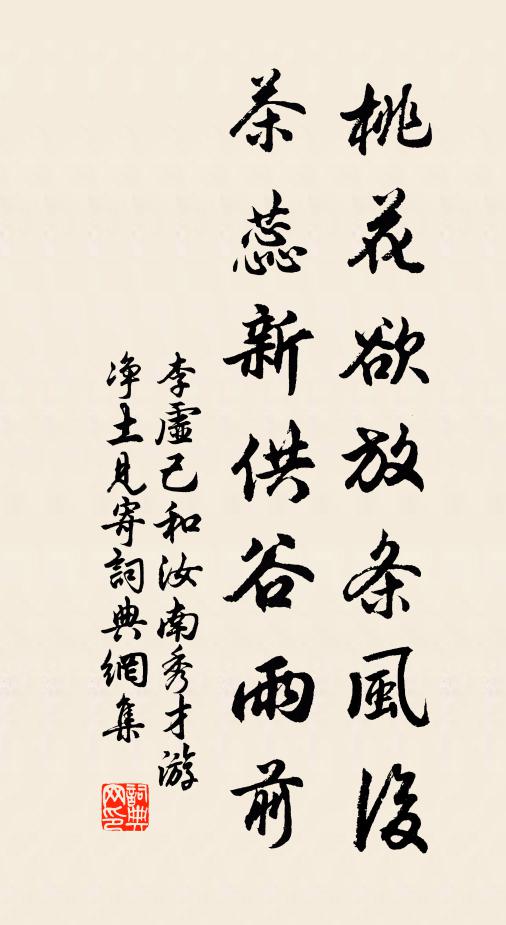 桃花欲放条風後
茶蕊新供谷雨前
李虛己和汝南秀才游
净土見寄詞典網集
詞典网印